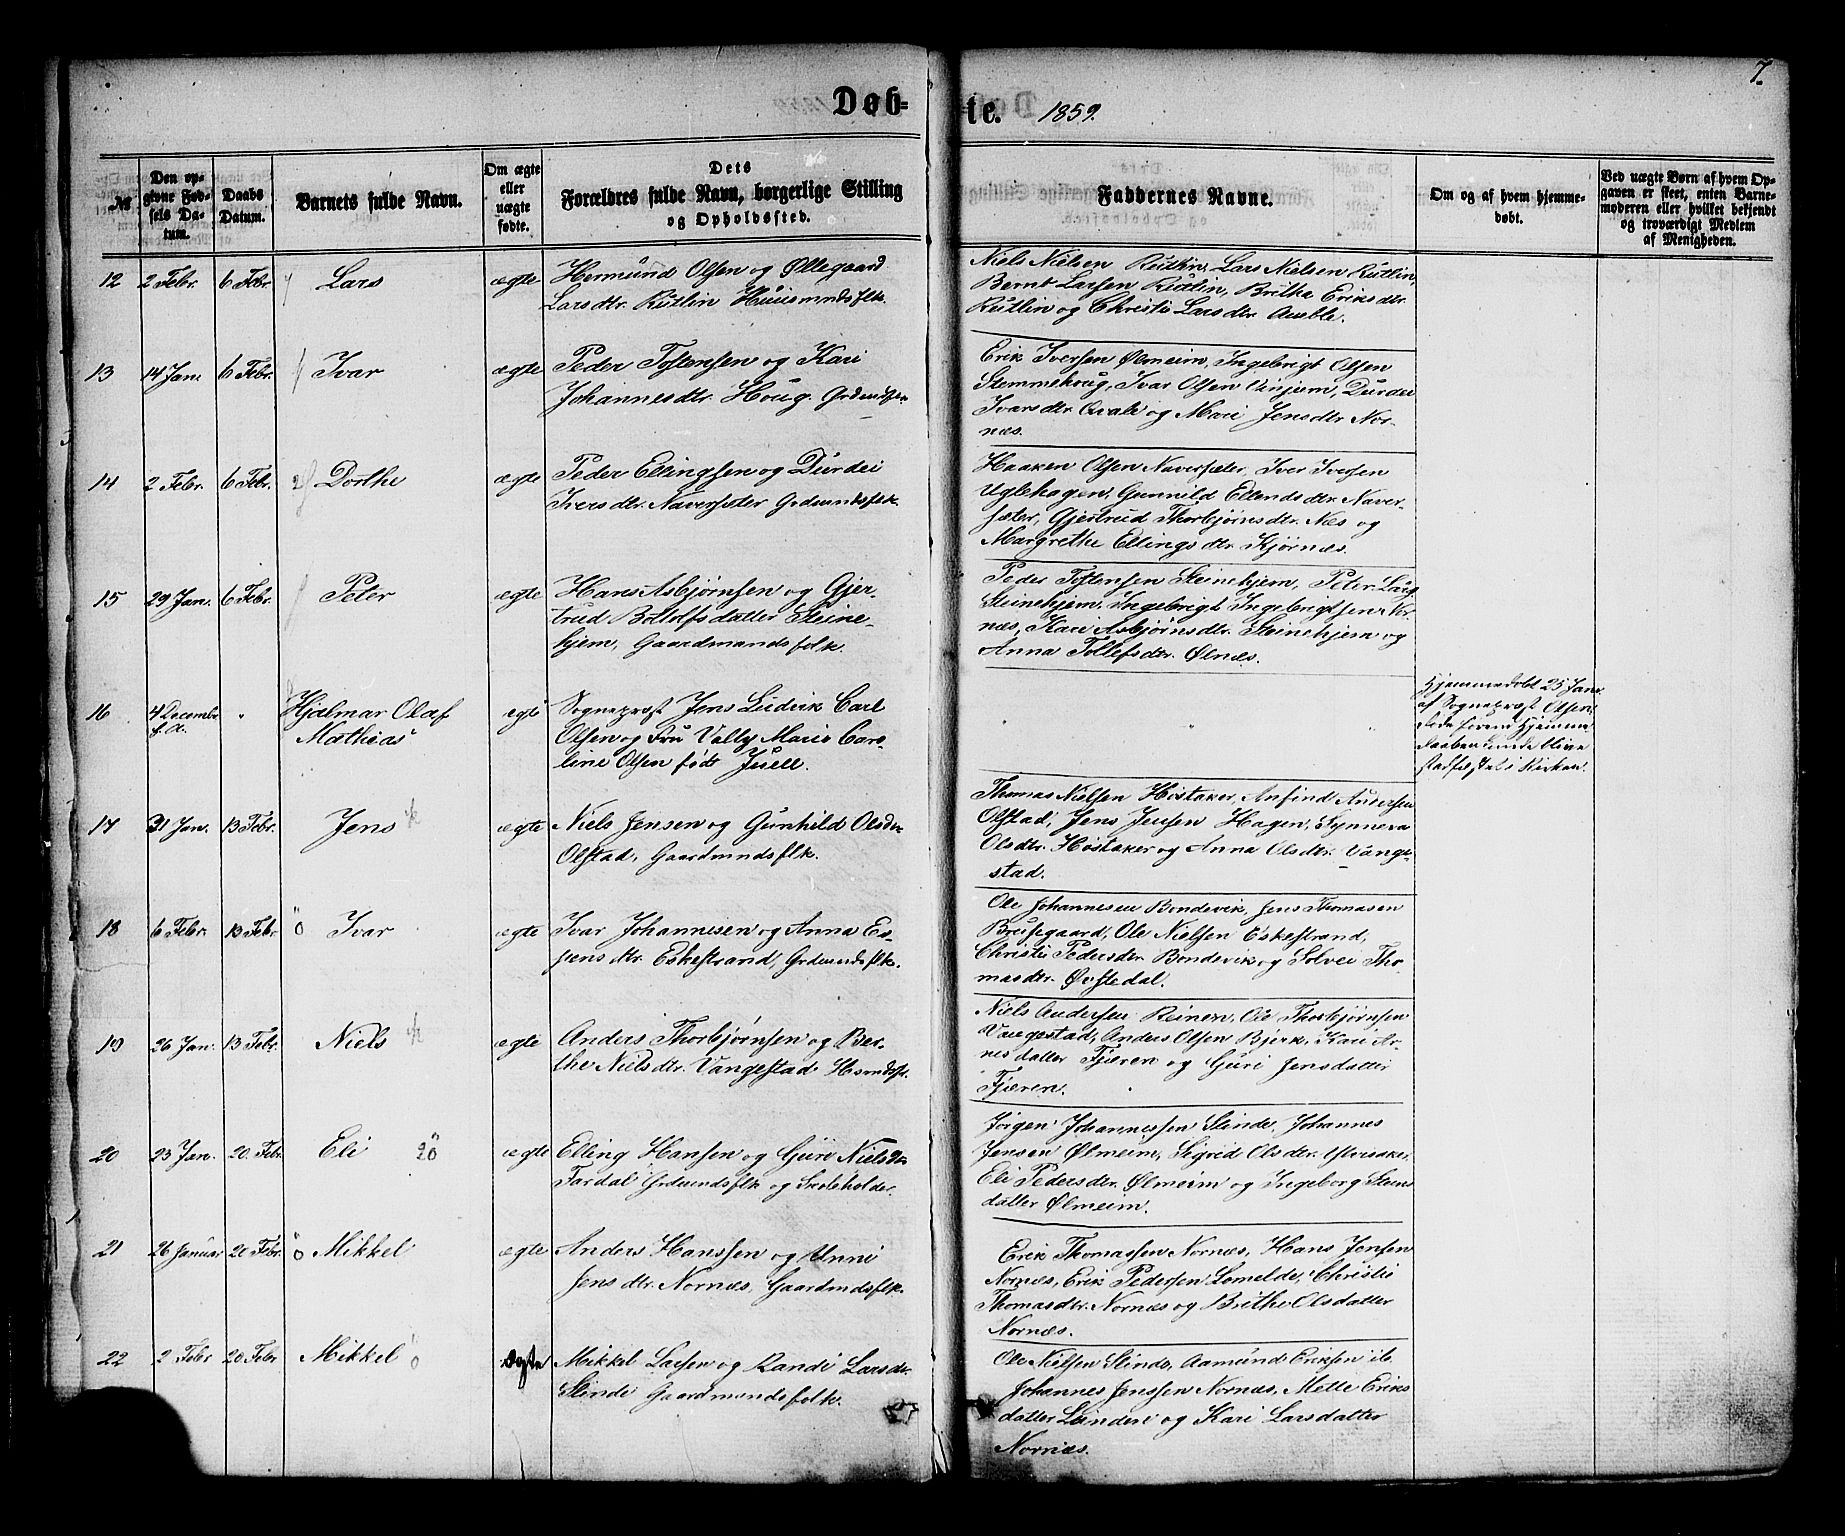 7.
Døb=
te. 1859.
№
Den op-
givne Fød-
sels Da-
tum.
Daabs
Datum.
Barnets fulde Navn.
Om ægte
eller
uægte
fødte.
Dets
Forældres fulde Navn, borgerlige Stilling
og Opholdssted.
Faddernes Navne.
Om og af hvem hjemme-
døbt.
Ved uægte Børn af hvem Op-
gaven er skeet, enten Barne-
moderen eller hvilket bekjendt
og troværdigt Medlem
af Menigheden.
12 2 Febr. 6 Febr. Lars ægte
Hermund Olsen og Øllegaard
Larsdtr. Rutlin Huusmndsflk.
Niels Nielsen Rutlin, Lars Nielsen Rutlin,
Bernt Larsen Rutlin, Britha Eriksdtr.
Rutlin og Christi Larsdtr. Amble.
13 14 Jan. 6 Febr. Ivar ægte
Peder Tostensen og Kari
Johannesdtr. Houg.
Erik Iversen Ølmeim, Ingebrigt Olsen
Stemmehoug, Ivar Olsen Vinjum, Durdei
Ivarsdtr. Qvale og Mari Jensdtr Nor-
næs.
14 2 Febr. 6 Febr. Dorthe ægte
Peder Ellingsen og Durdei
Iversdtr. Naversæter Grdmndsflk.
Haaken Olsen Naversæter, Iver Iversen
Uglehagen, Gunnild Ellendsdtr. Naver-
sæter, Gjertrud Thorbjørnsdtr. Næs og
Margrethe Ellingsdtr. Kjørnæs.
15 29 Jan. 6 Febr. Peter ægte
Hans Asbjørnsen og Gjer-
trud Botolfsdatter Steine-
hjem, Gaardmandsfolk.
Peder Tostensen Steinehjem, Peter
Steinehjem, Ingebrigt Ingebrigtsen Nor-
næs, Kari Asbjørnsdtr. Steinehjem og
Anna Tollefsdtr. Ølnæs.
16 4 Decembr. " Hjalmar Olaf
Mathias
Sognepræst Jens Ludvik Carl
Olsen og Fru Vally Marie Caro-
line Olsen født Juell.
" "
Hjemmedøbt 25 Janr.
af Sognepræst Olsen,
blive
stadfæstet i Kirken.
17 31 Jan. 13 Febr. Jens ægte
Niels Jensen og Gunhild Olsdtr
Olstad, Gaardmndsflk.
Thomas Nielsen Høstaker, Anfind Andersen
Olstad, Jens Jensen Hagen, Synneva
Olsdtr. Høstaker og Anna Olsdtr. Vange-
stad.
18 6 Febr. 13 Febr. Ivar ægte
Ivar Johannesen og Anna Es-
pensdtr. Eskestrand, Grdmndsflk.
Ole Johannesen Bondevik, Jens Thomasen
Brusegaard, Ole Nielsen Eskestrand,
Christi Pedersdtr. Bondevik og Solvei Tho-
masdtr. Øvstedal.
19 26 Jan. 13 Febr. Niels ægte
Anders Thorbjørnsen og Ber-
the Nielsdtr. Vangestad
Niels Andersen Reinen, Ole Thorbjørnsen
Vangestad, Anders Olsen Bjørk, Kari Ar-
nesdatter Fjæren og Guri Jensdatter
Fjæren.
20 23 Jan. 20. Febr. Eli ægte
Elling Hansen og Guri Nielsdtr
Fardal Grdmndsflk og Skoleholder.
Jørgen Johannessen Slinde, Johannes
Jensen Ølmeim, Sigrid Olsdtr. Ylvisaker,
Eli Pedersdtr. Ølmeim og Ingeborg Steins
datter Ølmeim.
21 26 Januar 20 Febr. Mikkel ægte
Anders Hanssen og Unni
Jensdtr. Nornæs, Gaardmndsflk.
Erik Thomassen Nornæs, Hans Jensen
Nornæs, Erik Pedersen Lomelde, Christie
Thomasdtr. Nornæs og Brithe Olsdatter
Nornæs.
22 2 Febr 20 Febr Mikkel ægte
Mikkel Larsen og Randi Larsdtr
Slinde Gaardmandsfolk.
Ole Nielsen Slinde, Aamund Eriksen ib.
Johannes Jenssen Nornæs, Mette Eriks
datter Slinde og Kari Larsdatter
Nornæs.